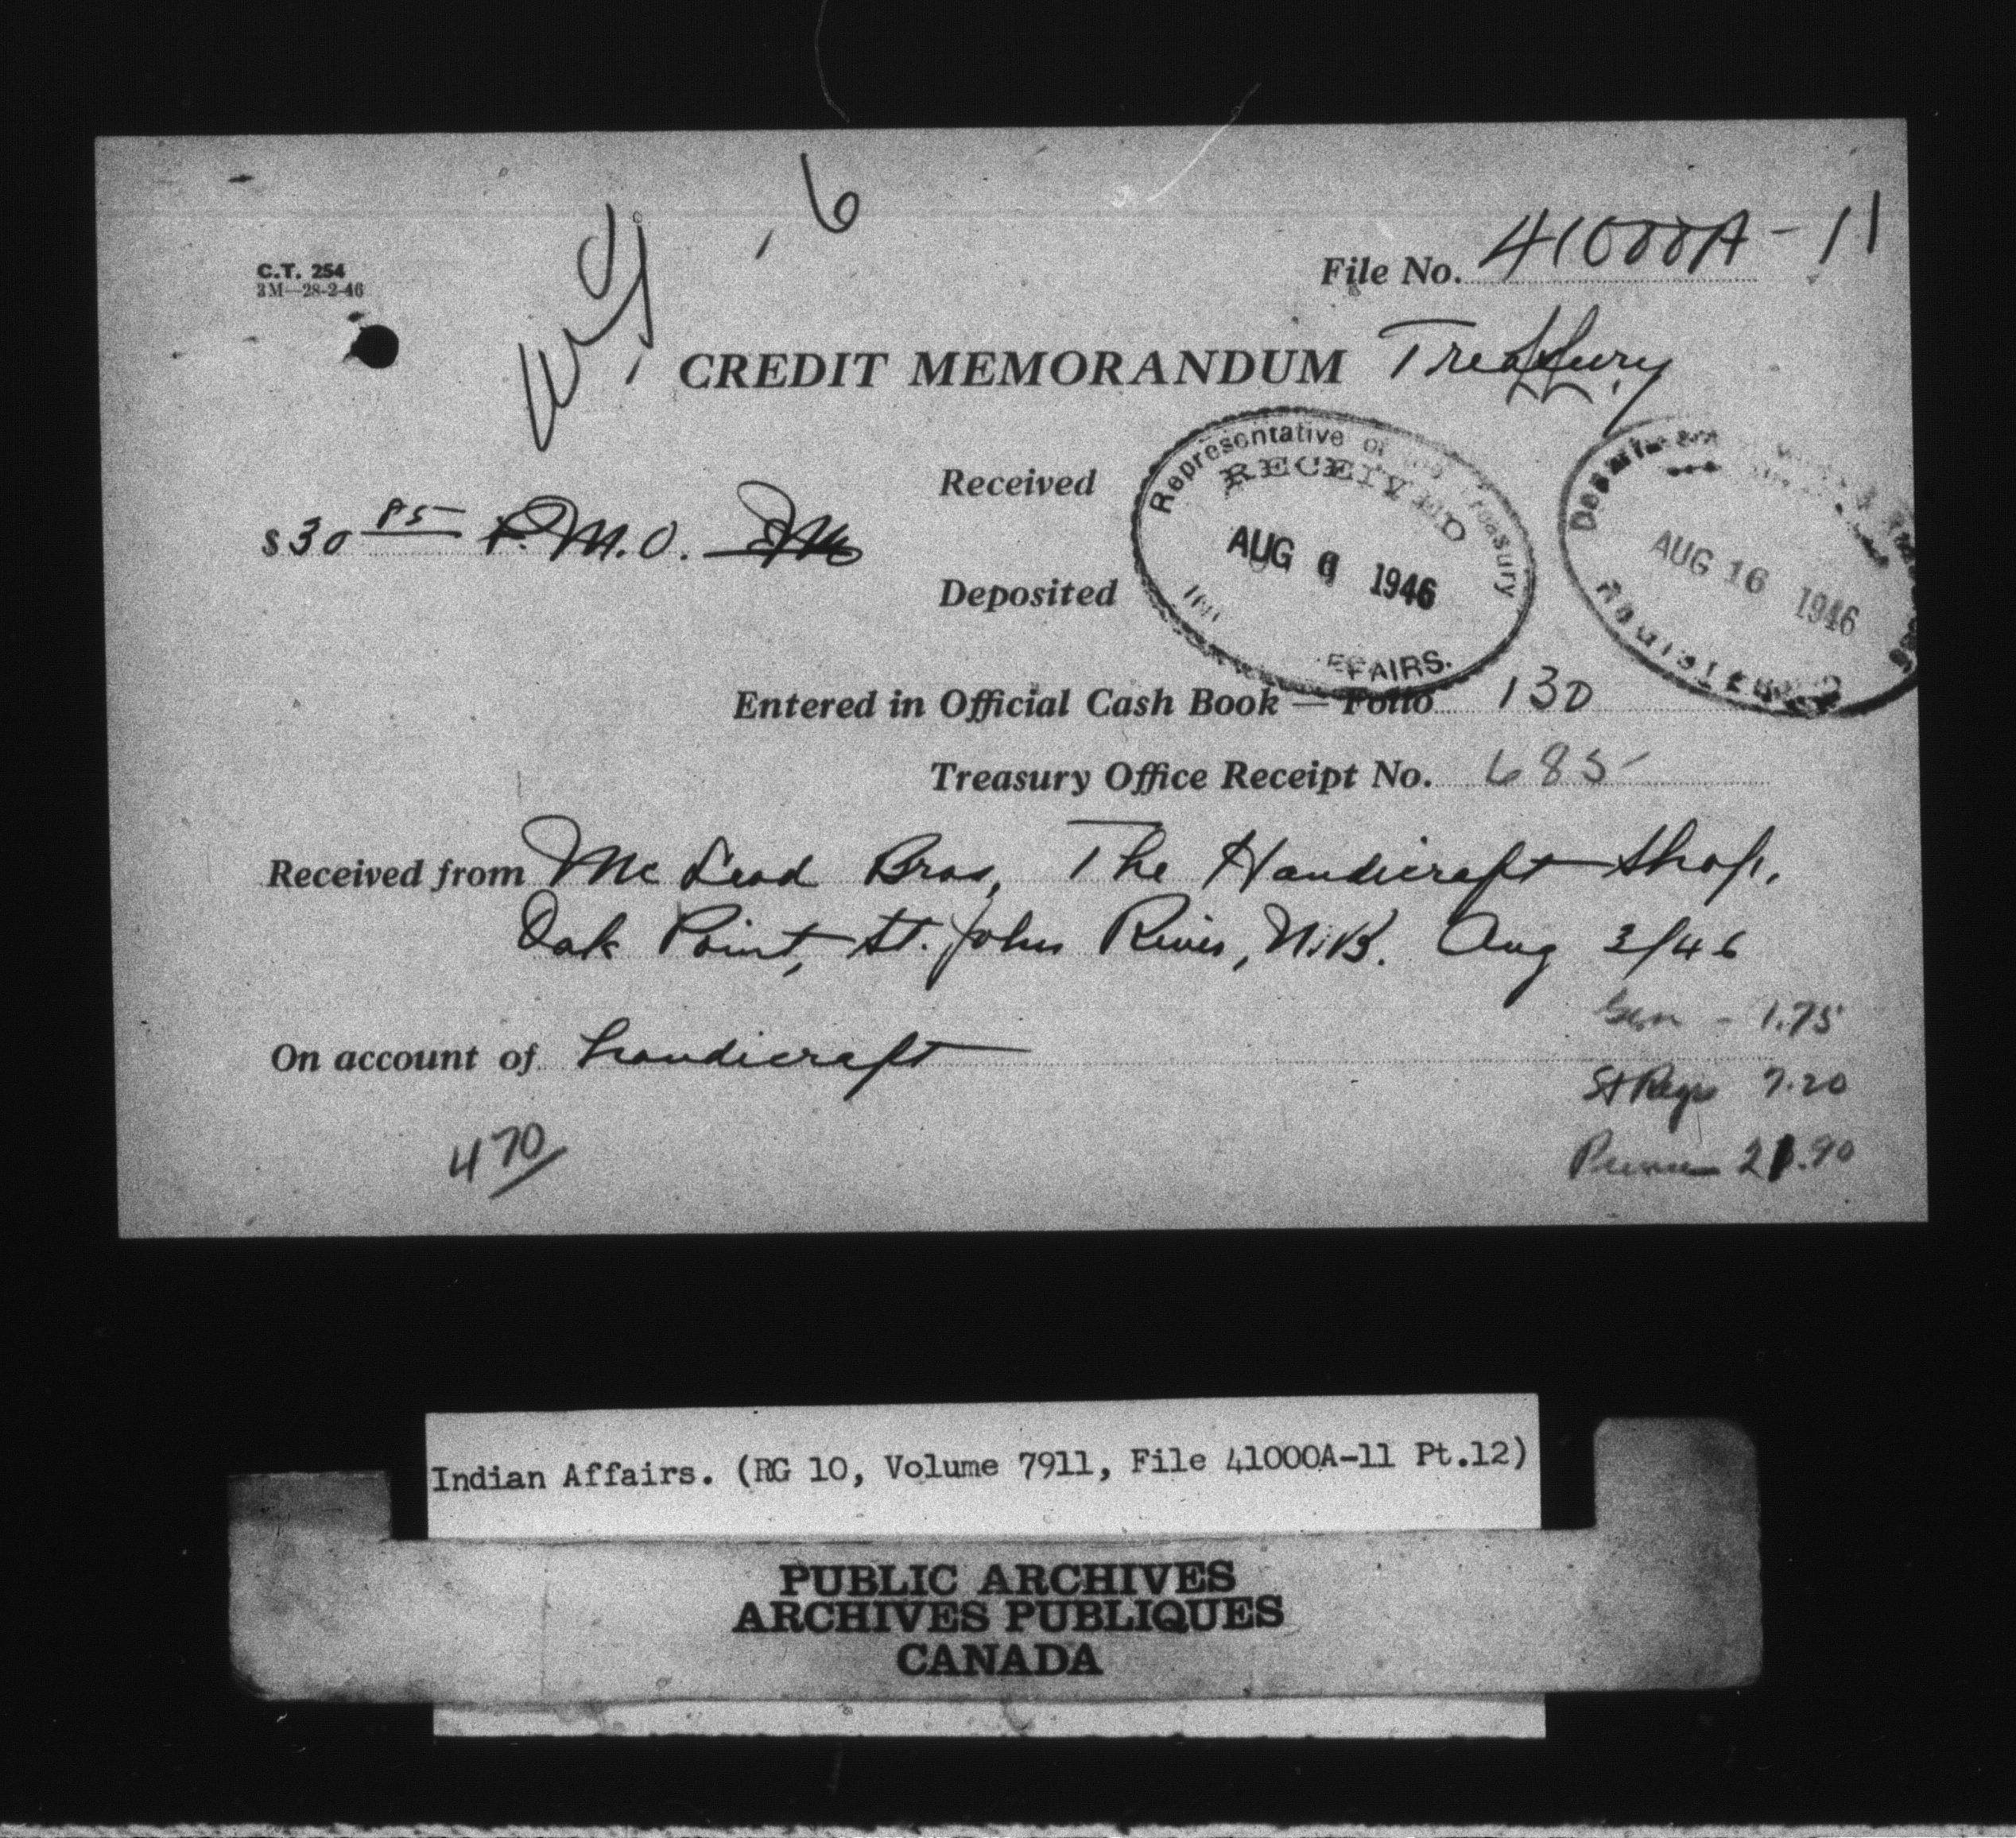 6
File No. 41000A-11
C.T. 254
3M—28-2-46
CREDIT MEMORANDUM Treasury
Received
Representative of the Treasury
RECEIVED
AUG 6 1946
AFFAIRS.
AUG 16 1946
$30 85 P.M.O.
Deposited
Entered in Official Cash Book — Folio 130
Treasury Office Receipt No. 685
Received from McLeod Bros, The Handicraft Shop,
Oak Point, St. John River, N.B. Aug 3/46
Gen - 1.75
On account of handicraft
St Regis 7.20
21.90
470
Indian Affairs. (RG 10, Volume 7911, File 41000A-11 Pt.12)
PUBLIC ARCHIVES
ARCHIVES PUBLIQUES
CANADA